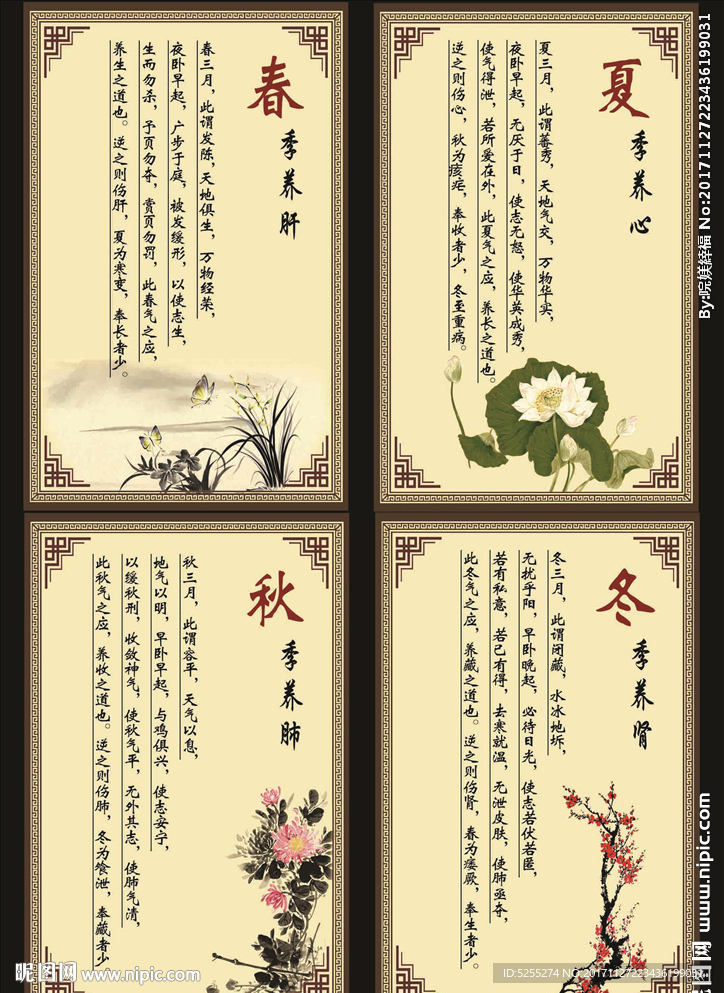 春
季养肝
春三月，此谓发陈，天地俱生，万物经荣，
夜卧早起，广步于庭，被发缓形，以使志生，
生而勿杀，予页勿夺，赏页勿罚，此春气之应，
养生之道也。逆之则伤肝，夏为寒变，奉长者少。
夏
季养心
夏三月，此谓蕃秀，天地气交，万物华实，
夜卧早起，无厌于日，使志无怒，使华英成秀，
使气得泄，若所爱在外，此夏气之应，养长之道也。
逆之则伤心，秋为痎疟，奉收者少，冬至重病。
秋
季养肺
秋三月，此谓容平，天气以息，
地气以明，早卧早起，与鸡俱兴，使志安宁，
以缓秋刑，收敛神气，使秋气平，无外其志，使肺气清，
此秋气之应，养收之道也。逆之则伤肺，冬为飧泄，奉藏者少。
冬
季养肾
冬三月，此谓闭藏，水冰地坼，
无扰乎阳，早卧晚起，必待日光，使志若伏若匿，
若有私意，若已有得，去寒就温，无泄皮肤，使肺亟夺，
此冬气之应，养藏之道也。逆之则伤肾，春为痿厥，奉生者少。
By:皖媄絳福 No:20171127223436199031
www.nipic.com
昵图网 www.nipic.com
ID:5255274 NO:20171127223436199031